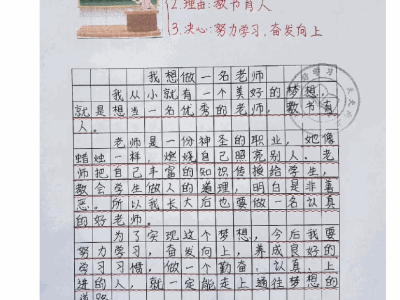 2.理由:教书育人
3.决心:努力学习,奋发向上
我想做一名老师
我从小就有一个美好的梦想,
就是想当一名优秀的老师,教书育
人。
老师是一份神圣的职业,她像
蜡烛一样,燃烧自己照亮别人。老
师把自己丰富的知识传授给学生,
教会学生做人的道理,明白是非善
恶。所以我长大后也要做一名认真
的好老师。
为了实现这个梦想,今后我要
努力学习,奋发向上,养成良好的
学习习惯,做一个勤奋、认真、上
进的人,就一定能走上通往梦想的
道路